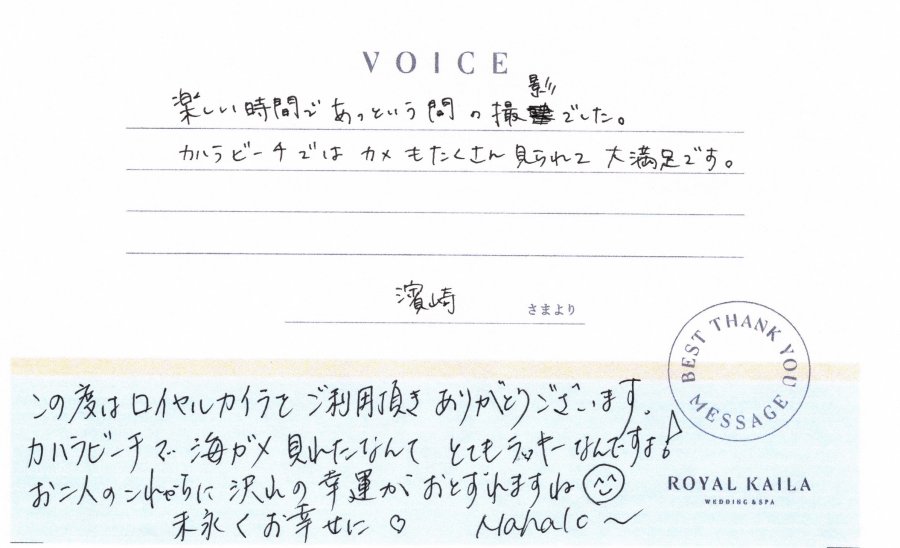 VOICE
楽しい時間であっという間の撮影でした。
カハラビーチではカメもたくさん見られて大満足です。
濱崎 さまより
BEST THANK YOU MESSAGE
この度はロイヤルカイラをご利用頂きありがとうございます。
カハラビーチで海ガメ見れたなんてとてもラッキーなんですよ♪
お二人のこれからに沢山の幸運がおとずれますね
末永くお幸せに♡ Mahalo〜
ROYAL KAILA
WEDDING & SPA